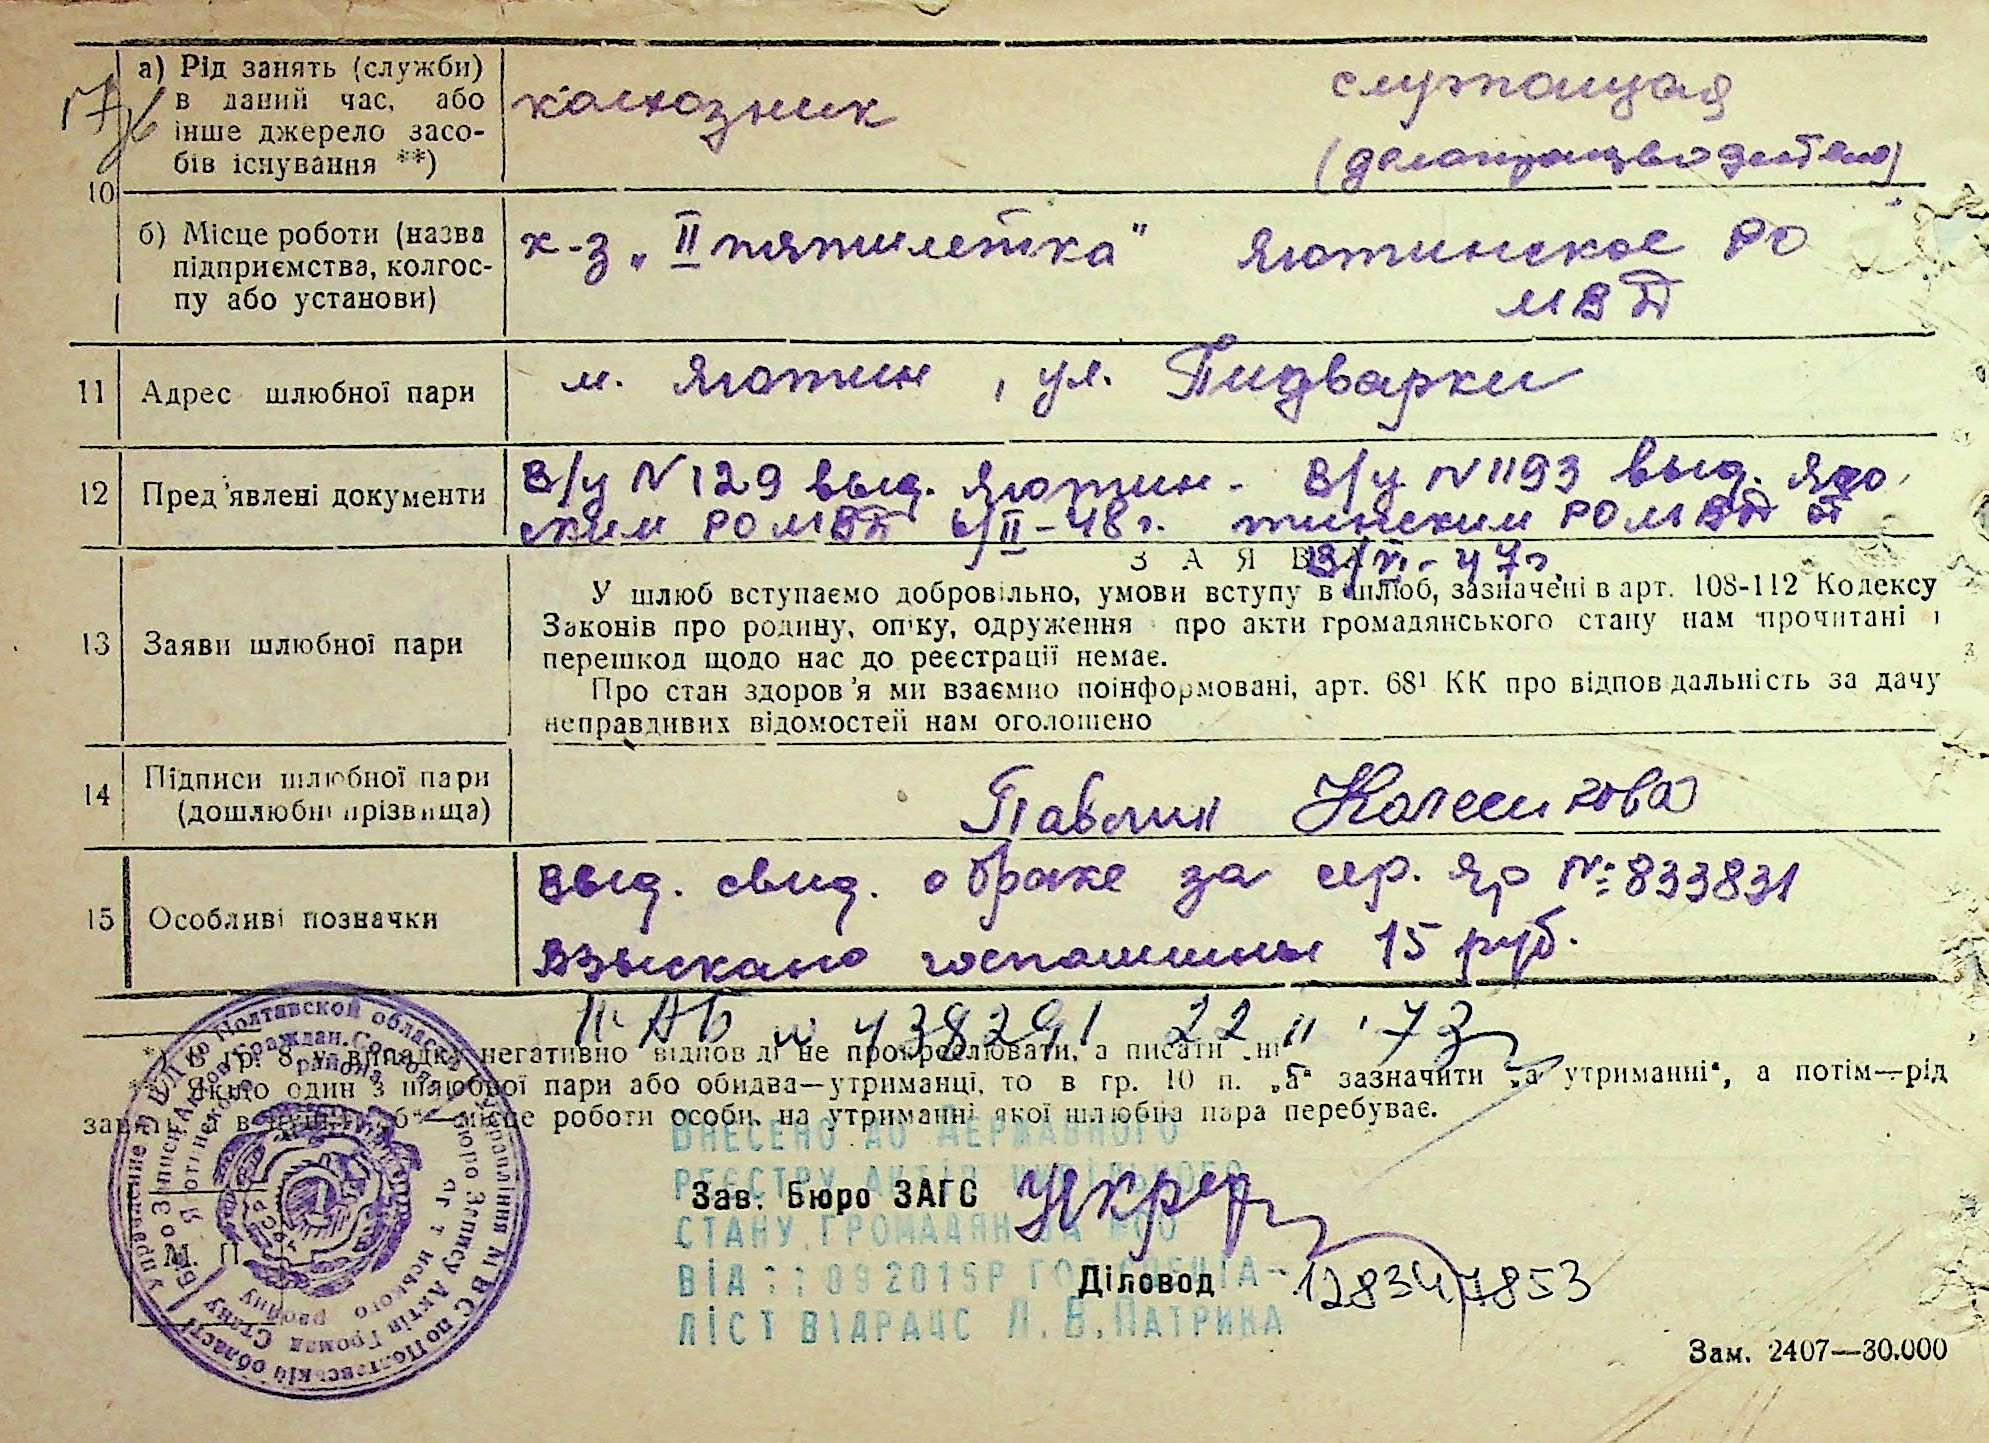 17/6
10
а) Рід занять (служби)
в даний час, або
інше джерело засо-
бів існування **)
колхозник
служащая
(делопроизводитель)
б) Місце роботи (назва
підприємства, колгос-
пу або установи)
к-з „II пятилетка"
Яготинское РО
МВД
11
Адрес шлюбної пари
м. Яготин, ул. Пидварки
12
Пред'явлені документи
В/у N 129 выд. Яготин-
ским РОМВД 6/II-48г.
В/у N 1193 выд. Яго-
тинским РОМВД от
13/VI-47г.
13
Заяви шлюбної пари
ЗАЯВА
У шлюб вступаємо добровільно, умови вступу в шлюб, зазначені в арт. 108-112 Кодексу
Законів про родину, опіку, одруження про акти громадянського стану нам прочитані і
перешкод щодо нас до реєстрації немає.
Про стан здоров'я ми взаємно поінформовані, арт. 68¹ КК про відповідальність за дачу
неправдивих відомостей нам оголошено
14
Підписи шлюбної пари
(дошлюбні прізвища)
Колесникова
15
Особливі позначки
Выд. свид. о браке за сер. Яр №833831
Взыскано госпошлины 15 руб.
АБ N 438291 22 II 73
*) В гр. 8 у випадку негативно відповіді не прокреслювати, а писати „ні"
** Якщо один з шлюбної пари або обидва—утриманці, то в гр. 10 п. „а" зазначити „на утриманні", а потім—рід
занять і в пункті „б"—місце роботи особи, на утриманні якої шлюбна пара перебуває.
ВНЕСЕНО ДО ДЕРЖАВНОГО
РЕЄСТРУ АКТІВ ЦИВІЛЬНОГО
СТАНУ ГРОМАДЯН ЗА №00
ВІД 11 09 2015Р ГОЛ СПЕЦІА-
ЛІСТ ВІДРАЦС Л. В. ПАТРИКА
Зав. Бюро ЗАГС
Діловод
128347853
М. П.
Управление МВД по Полтавской области
Управління МВС по Полтавській області
Бюро Записи Актов Граждан. Состояния
Яготинского района
Бюро Запису Актів Громад. Стану
Яготинського району
УРСР
Зам. 2407—30.000